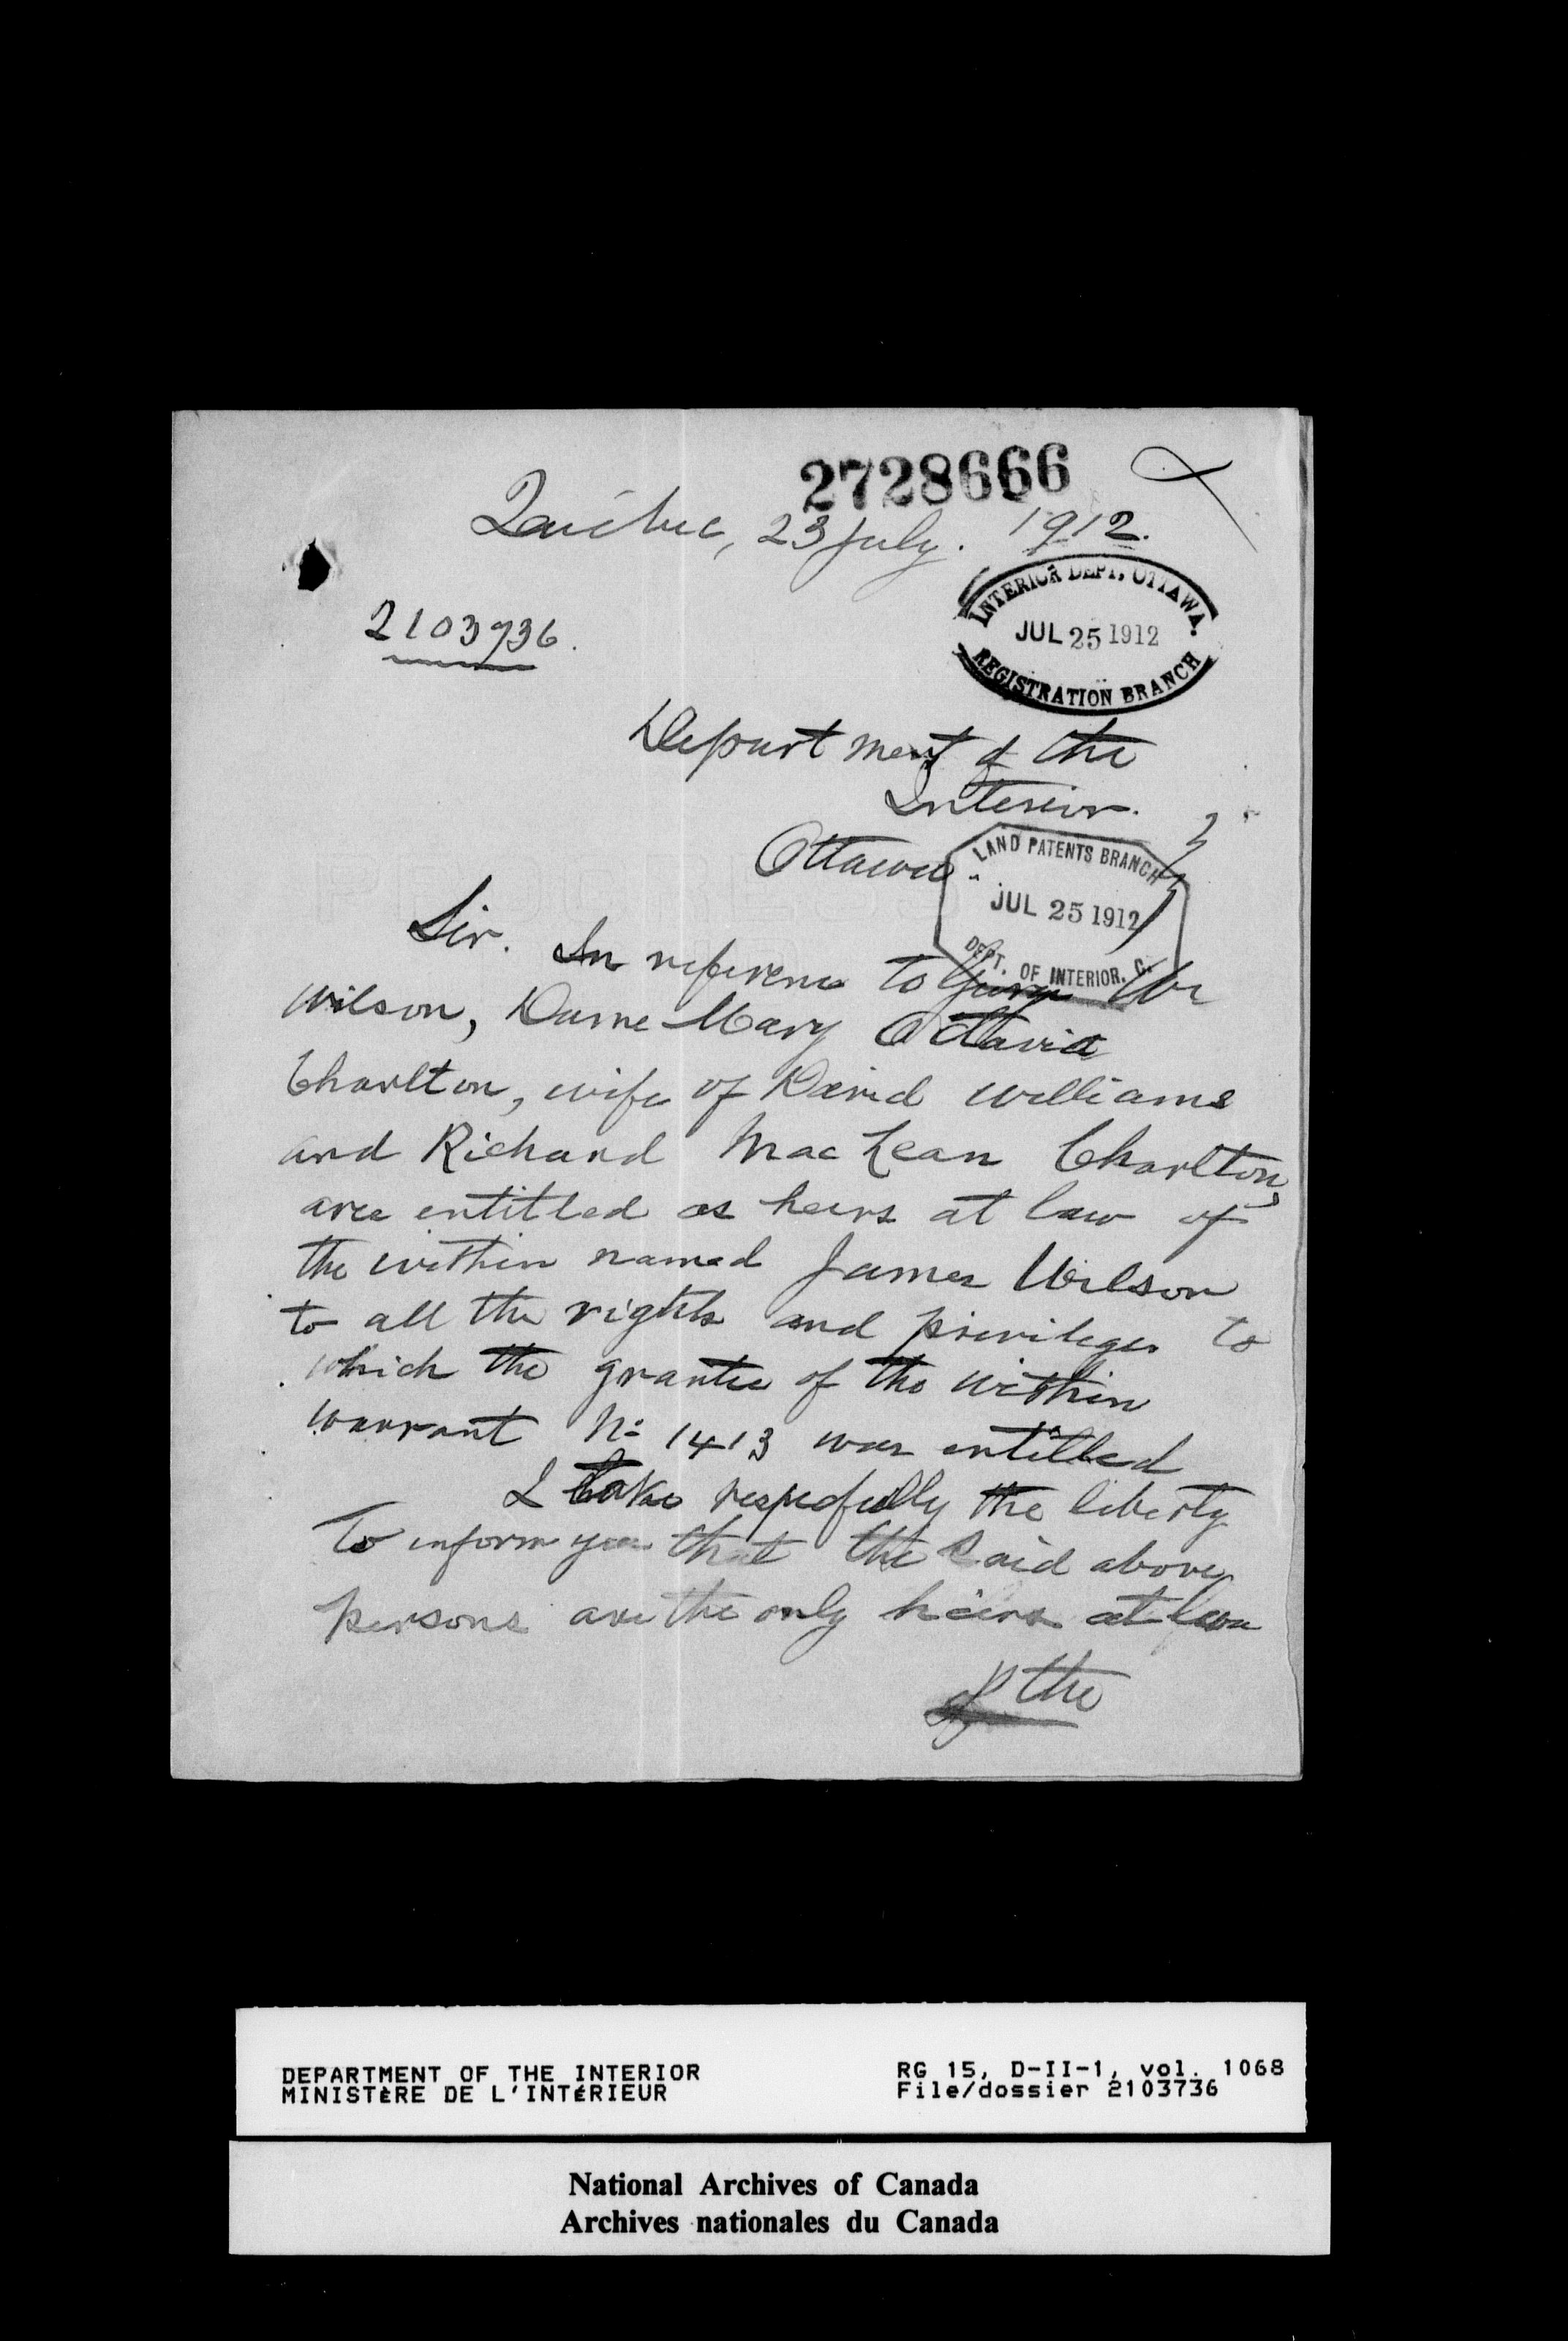 2728666
Québec, 23 July. 1912.
INTERIOR DEPT, OTTAWA.
JUL 25 1912
REGISTRATION BRANCH
2103736.
Department of the
Interior.
Ottawa.
LAND PATENTS BRANCH
JUL 25 1912
DEPT. OF INTERIOR. C.
Sir. In reference to
Wilson, Dame Mary Ottavia
Charlton, wife of David Williams
and Richard MacLean Charlton,
are entitled as heirs at law of
the within named James Wilson
to all the rights and privileges to
which the grantee of the within
warrant No 1413 was entitled
I take respectfully the liberty
To inform you that the said above
persons are the only heirs at law
of the
DEPARTMENT OF THE INTERIOR
MINISTÈRE DE L'INTÉRIEUR
RG 15, D-II-1, vol. 1068
File/dossier 2103736
National Archives of Canada
Archives nationales du Canada